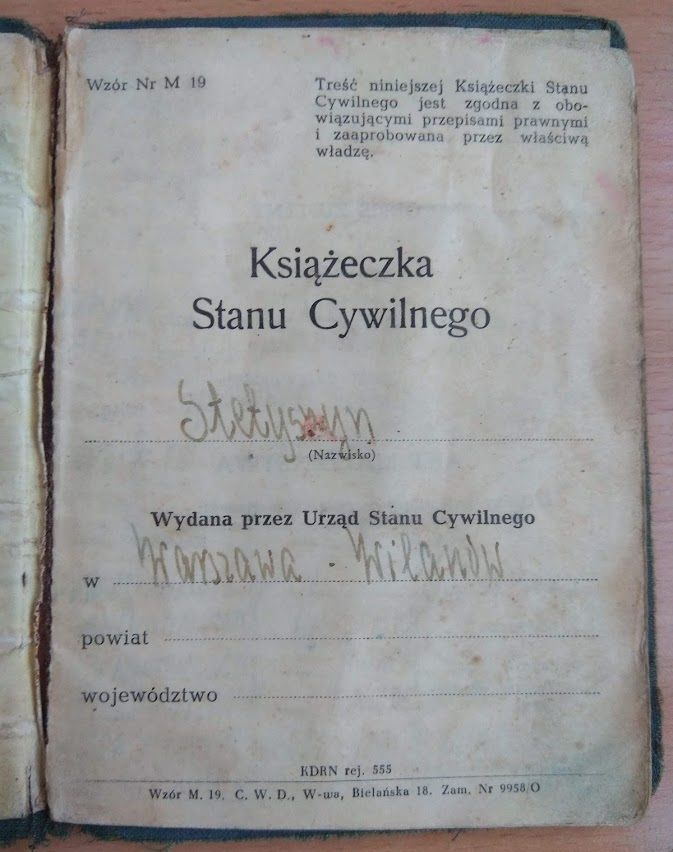 Wzór Nr M 19
Treść niniejszej Książeczki Stanu
Cywilnego jest zgodna z obo-
wiązującymi przepisami prawnymi
i zaaprobowana przez właściwą
władzę.
Książeczka
Stanu Cywilnego
Stetyszyn
(Nazwisko)
Wydana przez Urząd Stanu Cywilnego
w Warszawa - Wilanów
powiat
województwo
KDRN rej. 555
Wzór M. 19. C. W. D., W-wa, Bielańska 18. Zam. Nr 9958/O